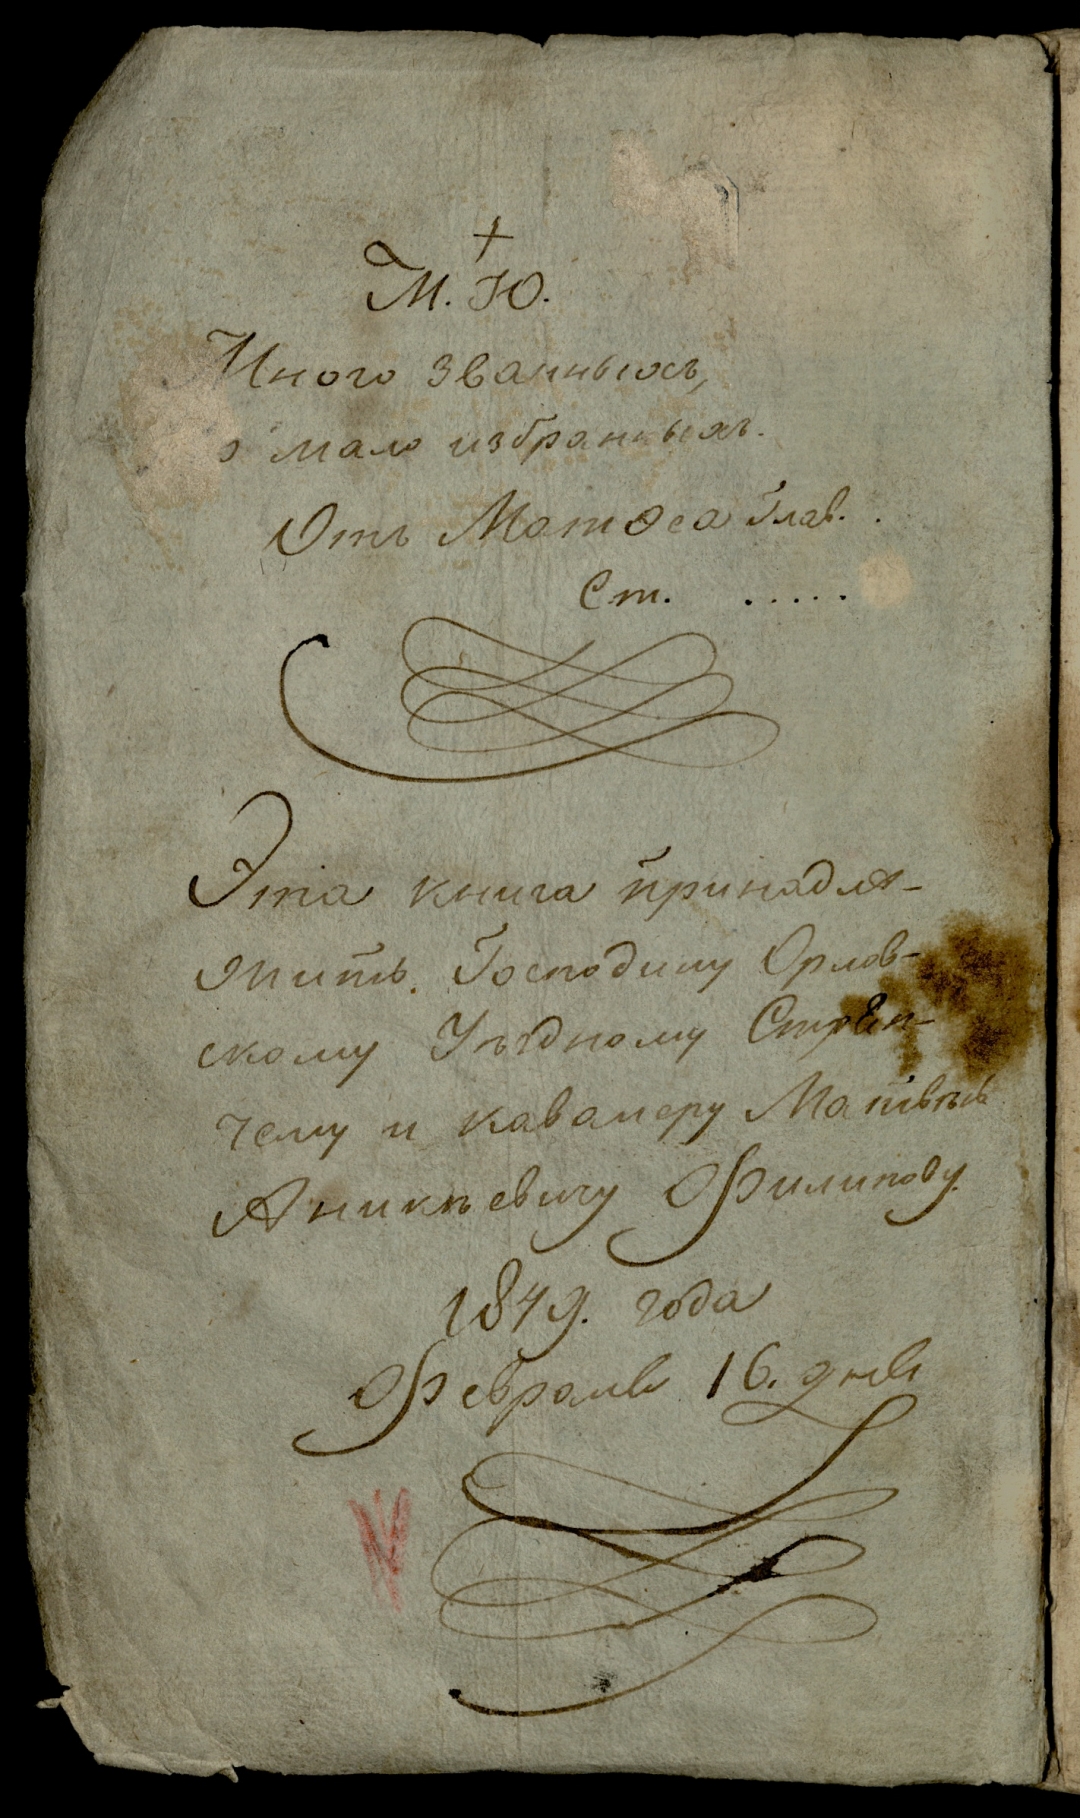 М. Ю.
Много званныхъ,
а мало избранныхъ.
Отъ Матѳеа Глав. .
Ст. .....
Эта книга принадле-
житъ. Господину Орлов-
скому Уѣздному Стряп-
чему и кавалеру Матвѣю
Аникѣевичу Филипову.
1849. года
Февраля 16. дня